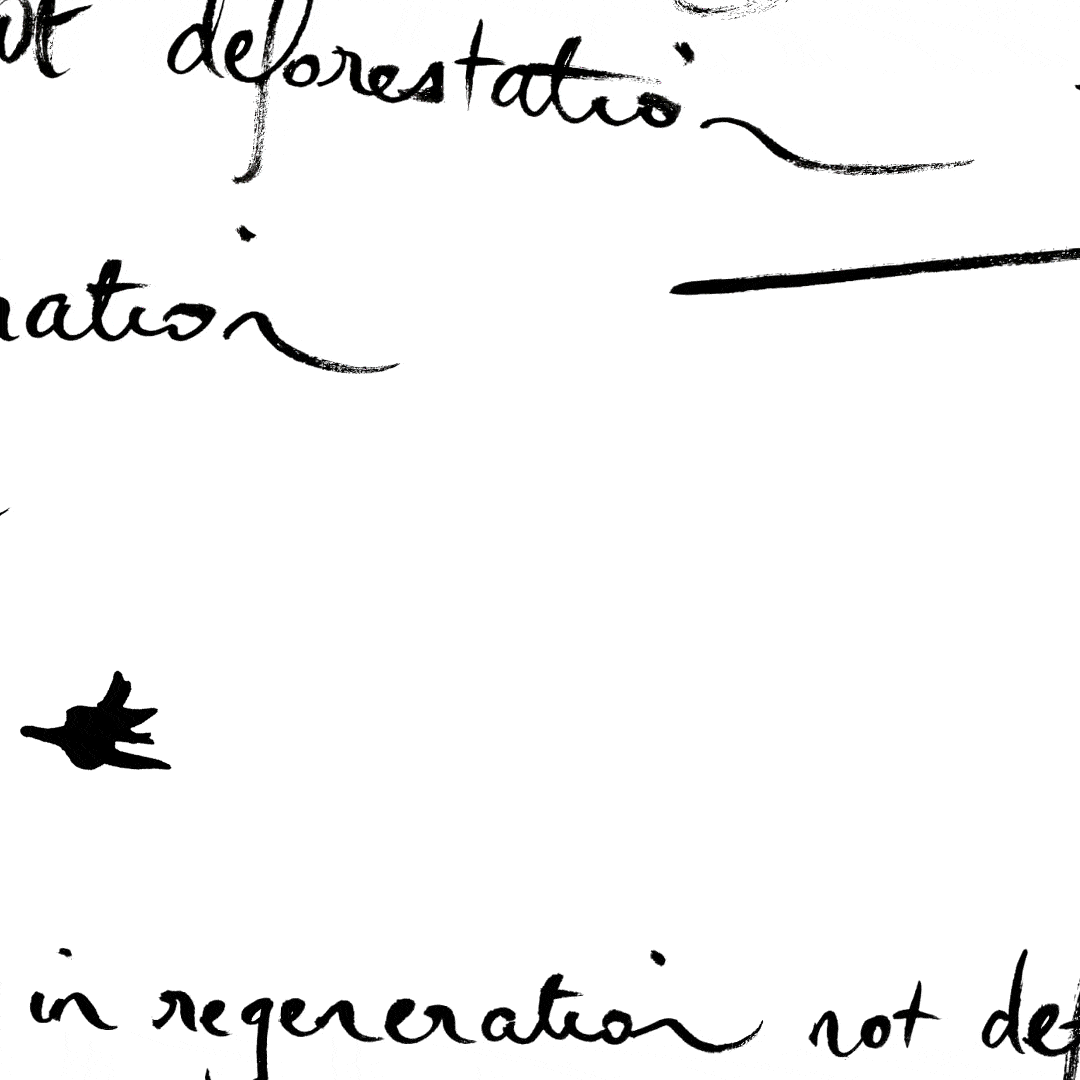 ot deforestation
nation
in regeneration not def